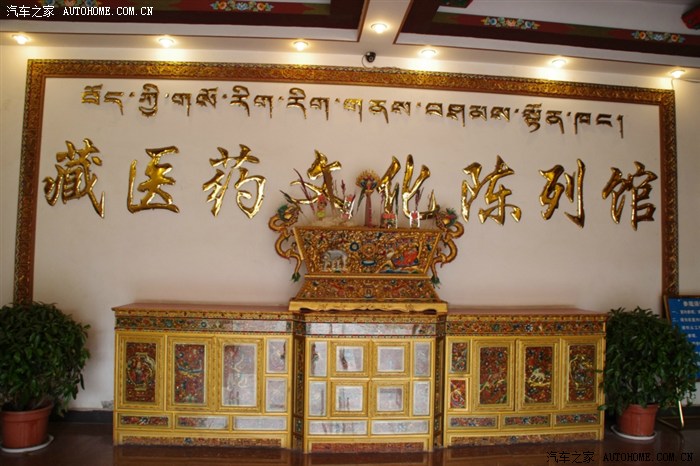 汽车之家 AUTOHOME.COM.CN
བོད་ཀྱི་གསོ་རིག་རིག་གནས་བཤམས་སྟོན་ཁང་།
藏医药文化陈列馆
汽车之家 AUTOHOME.COM.CN